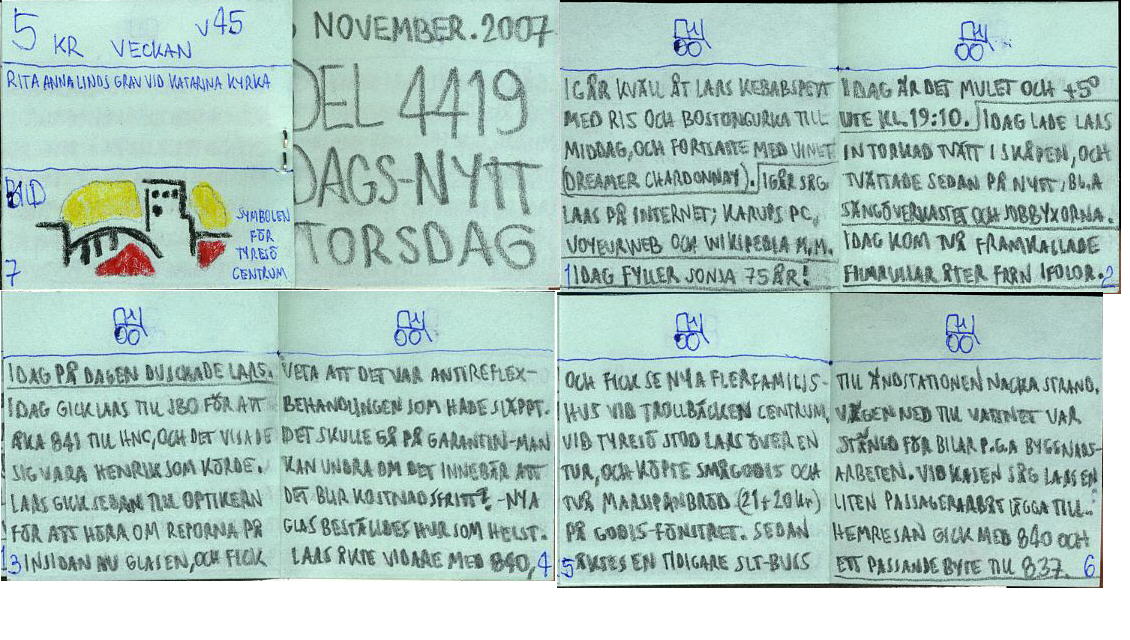 5 KR VECKAN V45
RITA ANNA LINDS GRAV VID KATARINA KYRKA
BILD
SYMBOLEN
FÖR
TYRESÖ
CENTRUM
7
NOVEMBER.2007
DEL 4419
DAGS-NYTT
TORSDAG
IGÅR KVÄLL ÅT LARS KEBABSPETT
MED RIS OCH BOSTONGURKA TILL
MIDDAG, OCH FORTSATTE MED VINET
(DREAMER CHARDONNAY). IGÅR SÅG
LARS PÅ INTERNET; KARUPS PC,
VOYEURWEB OCH WIKIPEDIA M.M.
1 IDAG FYLLER SONJA 75 ÅR!
IDAG ÄR DET MULET OCH +5°
UTE KL.19:10. IDAG LADE LARS
IN TORKAD TVÄTT I SKÅPEN, OCH
TVÄTTADE SEDAN PÅ NYTT, BL.A
SÄNGÖVERKASTET OCH JOBBYXORNA.
IDAG KOM TVÅ FRAMKALLADE
FILMRULLAR ÅTER FRÅN IFOLOR. 2
IDAG PÅ DAGEN DUSCHADE LARS.
IDAG GICK LARS TILL JBO FÖR ATT
ÅKA 841 TILL HNC, OCH DET VISADE
SIG VARA HENRIK SOM KÖRDE.
LARS GICK SEDAN TILL OPTIKERN
FÖR ATT HÖRA OM REPORNA PÅ
3 INSIDAN AV GLASEN, OCH FICK
VETA ATT DET VAR ANTIREFLEX-
BEHANDLINGEN SOM HADE SLÄPPT.
DET SKULLE GÅ PÅ GARANTIN-MAN
KAN UNDRA OM DET INNEBÄR ATT
DET BLIR KOSTNADSFRITT? -NYA
GLAS BESTÄLLDES HUR SOM HELST.
LARS ÅKTE VIDARE MED 840, 4
OCH FICK SE NYA FLERFAMILJS-
HUS VID TROLLBÄCKEN CENTRUM.
VID TYRESÖ STOD LARS ÖVER EN
TUR, OCH KÖPTE SMÅGODIS OCH
TVÅ MARSIPANBRÖD (21+20 kr)
PÅ GODIS-FÖNSTRET. SEDAN
5 ÅKTES EN TIDIGARE SLT-BUSS
TILL ÄNDSTATIONEN NACKA STRAND.
VÄGEN NED TILL VATTNET VAR
STÄNGD FÖR BILAR P.G.A BYGGNADS-
ARBETEN. VID KAJEN SÅG LARS EN
LITEN PASSAGERARBÅT LÄGGA TILL.
HEMRESAN GICK MED 840 OCH
ETT PASSANDE BYTE TILL 837. 6